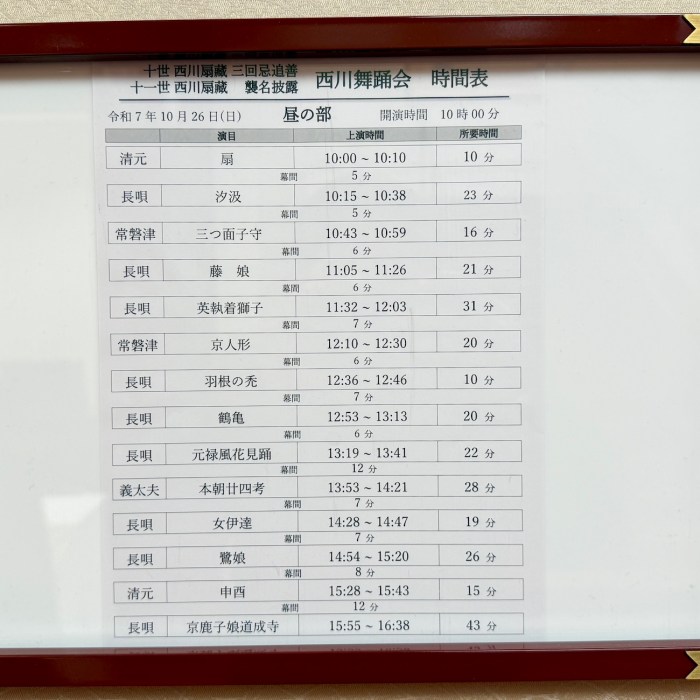 十世 西川扇藏 三回忌追善
十一世 西川扇藏 襲名披露
西川舞踊会 時間表
令和7年10月26日(日) 昼の部 開演時間 10時00分
演目 上演時間 所要時間
清元 扇 10:00 ~ 10:10 10 分
幕間 5 分
長唄 汐汲 10:15 ~ 10:38 23 分
幕間 5 分
常磐津 三つ面子守 10:43 ~ 10:59 16 分
幕間 6 分
長唄 藤 娘 11:05 ~ 11:26 21 分
幕間 6 分
長唄 英執着獅子 11:32 ~ 12:03 31 分
幕間 7 分
常磐津 京人形 12:10 ~ 12:30 20 分
幕間 6 分
長唄 羽根の禿 12:36 ~ 12:46 10 分
幕間 7 分
長唄 鶴亀 12:53 ~ 13:13 20 分
幕間 6 分
長唄 元禄風花見踊 13:19 ~ 13:41 22 分
幕間 12 分
義太夫 本朝廿四考 13:53 ~ 14:21 28 分
幕間 7 分
長唄 女伊達 14:28 ~ 14:47 19 分
幕間 7 分
長唄 鷺娘 14:54 ~ 15:20 26 分
幕間 8 分
清元 申酉 15:28 ~ 15:43 15 分
幕間 12 分
長唄 京鹿子娘道成寺 15:55 ~ 16:38 43 分